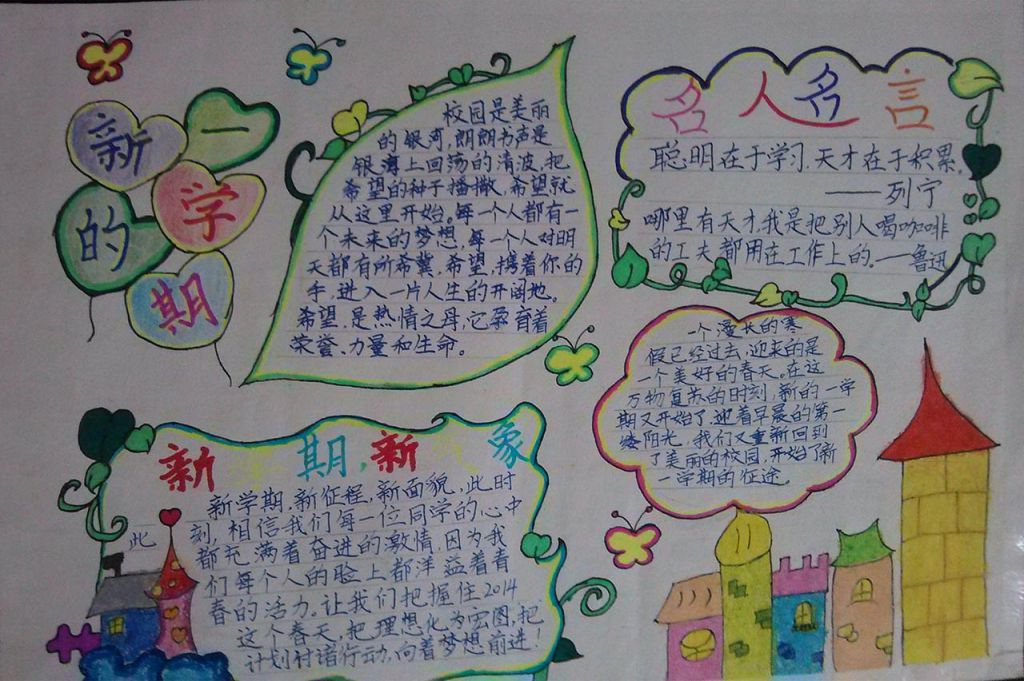 新的一学期
校园是美丽
的银河,朗朗书声是
银海上回荡的清波,把
希望的种子播撒,希望就
从这里开始。每一个人都有一
个未来的梦想,每一个人对明
天都有所希冀,希望,携着你的
手,进入一片人生的开阔地。
希望,是热情之母,它孕育着
荣誉、力量和生命。
名人名言
聪明在于学习,天才在于积累。
——列宁
哪里有天才,我是把别人喝咖啡
的工夫都用在工作上的。——鲁迅
一个漫长的寒
假已经过去,迎来的是
一个美好的春天。在这
万物复苏的时刻,新的一学
期又开始了,迎着早晨的第一
缕阳光,我们又重新回到
了美丽的校园,开始了新
一学期的征途。
新 期,新 象
新学期,新征程,新面貌,此时
此
刻,相信我们每一位同学的心中
都充满着奋进的激情,因为我
们每个人的脸上都洋溢着青
春的活力。让我们把握住2014
这个春天,把理想化为宏图,把
计划付诸行动,向着梦想前进!